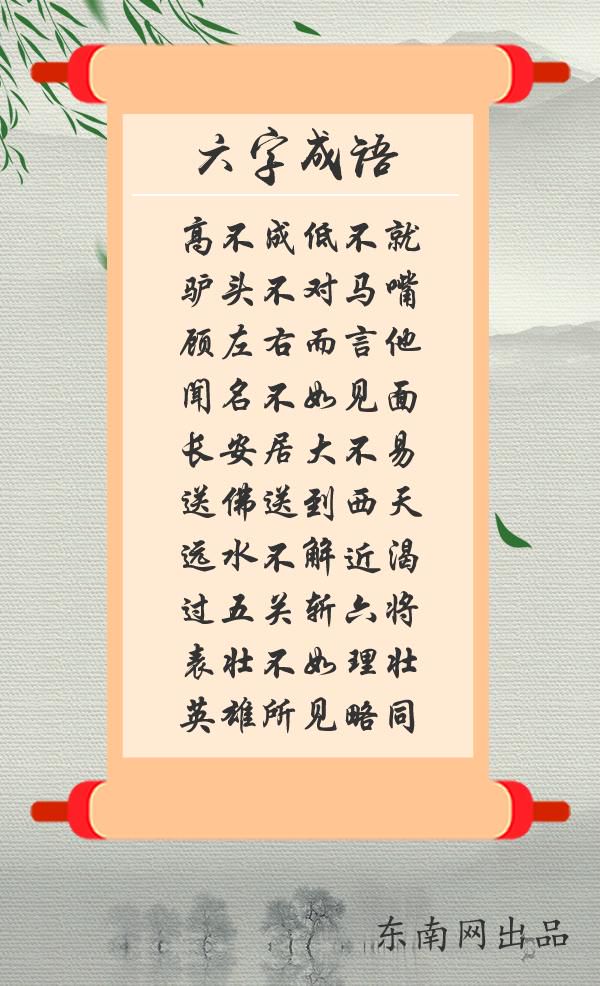 六字成语
高不成低不就
驴头不对马嘴
顾左右而言他
闻名不如见面
长安居大不易
送佛送到西天
远水不解近渴
过五关斩六将
表壮不如理壮
英雄所见略同
东南网出品